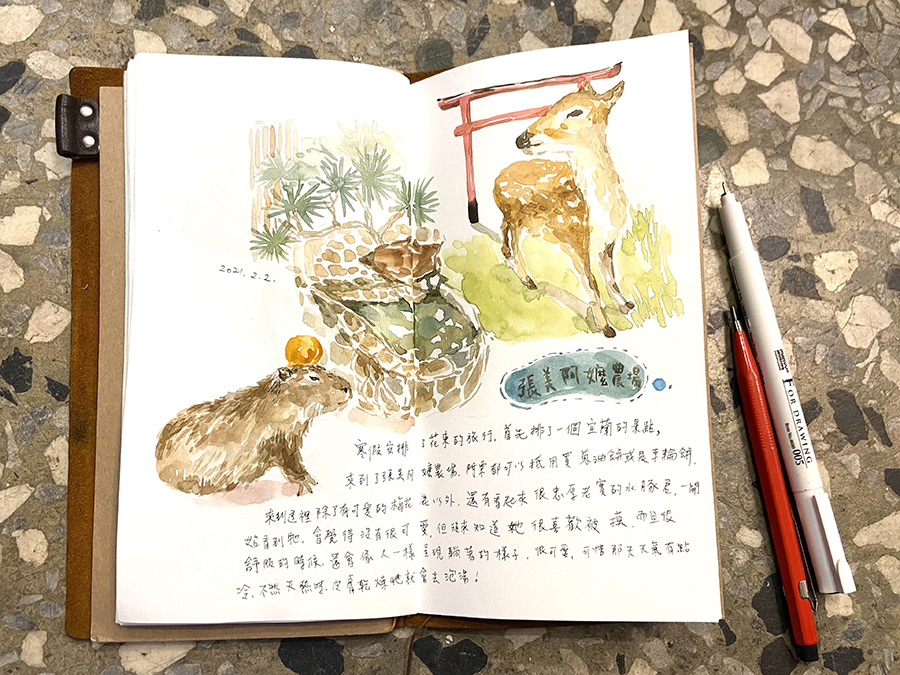 2021.2.2.
張美阿嬤農場
寒假安排了花東的旅行,首先排了一個宜蘭的景點,
來到了張美阿嬤農場,門票都可以抵用買蔥油餅或是車輪餅.
來到這裡除了有可愛的梅花鹿以外,還有看起來很忠厚老實的水豚君,一開
始看到牠,會覺得沒有很可愛,但後來知道她很喜歡被摸,而且很
舒服的時候,還會像人一樣呈現躺著的樣子,很可愛,可惜那天天氣有點
冷,不然天熱時,皮膚乾燥牠就會去泡湯!
FOR DRAWING
005